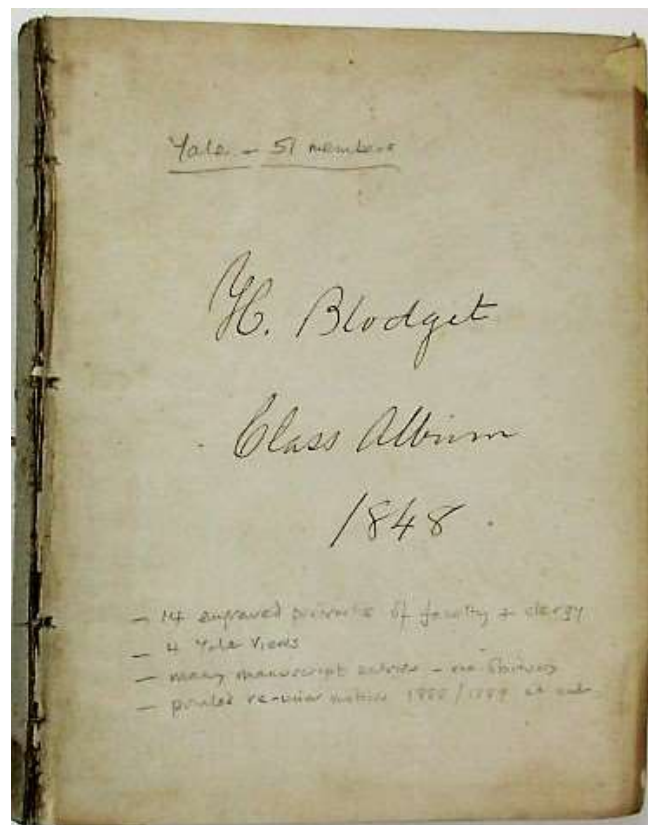 Yale - 51 members
H. Blodget
Class Album
1848.
- 14 engraved portraits of faculty + clergy
- 4 Yale Views
- many manuscript entries -
- printed re-union notices 1888/1889 at end